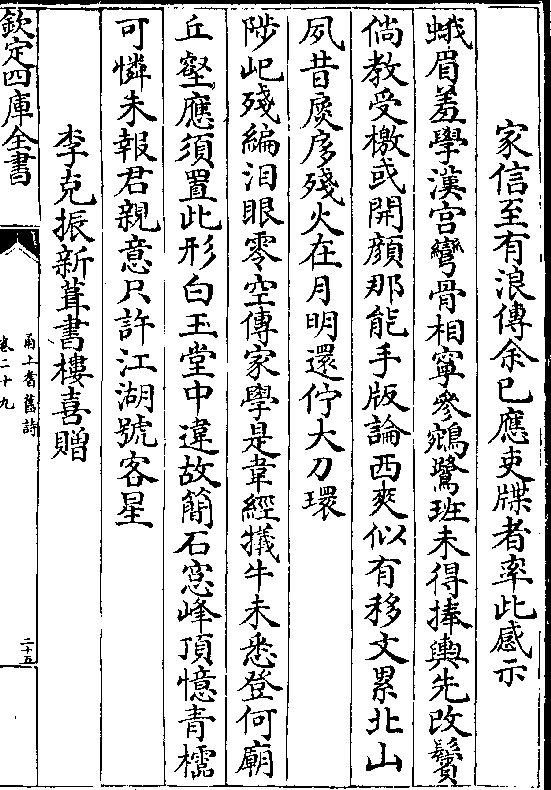 家信至有浪傳余已應吏牒者率此感示
蛾眉羞學漢宫彎骨相寧參鵷鷺班未得捧輿先改鬢
倘教受檄或開顔那能手版論西爽似有移文累北山
夙昔扊扅殘火在月明還佇大刀環
陟屺殘編泪眼零空傳家學是韋經犧牛未悉登何廟
丘壑應須置此形白玉堂中違故簡石窓峰頂憶青櫺
可憐未報君親意只許江湖號客星
李克振新葺書樓喜贈
欽定四庫全書
甬上耆舊詩
卷二十九
二十五